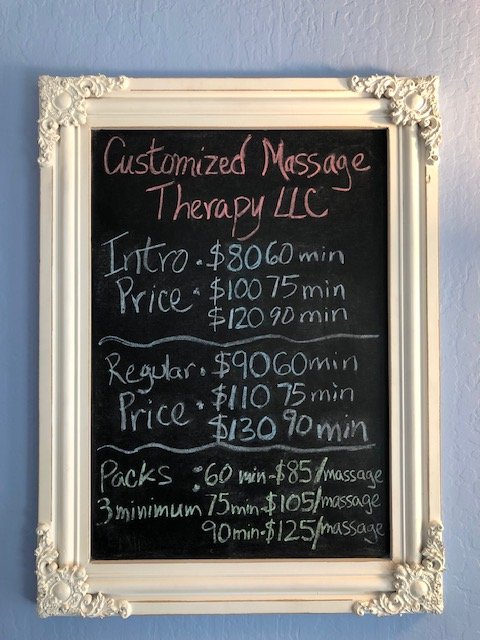 Customized Massage
Therapy LLC
Intro • $80 60 min
Price • $100 75 min
$120 90 min
Regular • $90 60 min
Price • $110 75 min
$130 90 min
Packs : 60 min-$85/massage
3 minimum 75 min-$105/massage
90 min-$125/massage